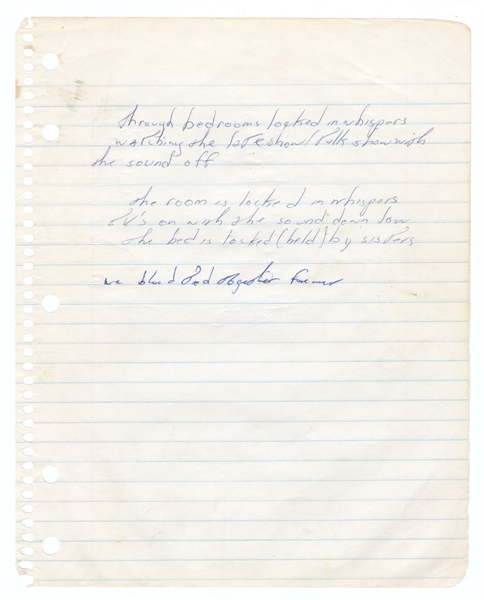 through bedrooms locked in whispers
watching the late show/talk show with
the sound off
the room is locked in whispers
TV's on with the sound down low
the bed is locked (held) by sisters
we blood tied together forever